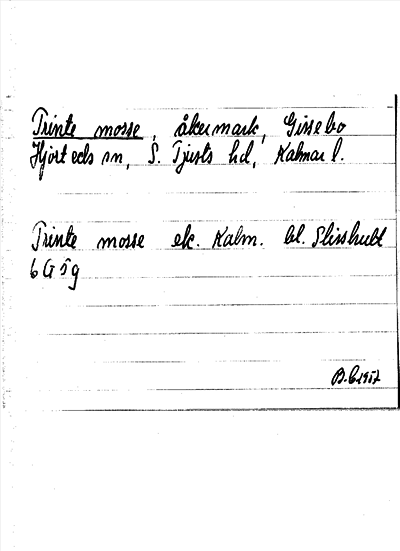 Trinte mosse, åkermark, Gissebo
Hjorteds sn, S. Tjusts hd, Kalmar l.
Trinte mosse ek. Kalm. bl. Slisshult
6 G 5 g
B.E 1957